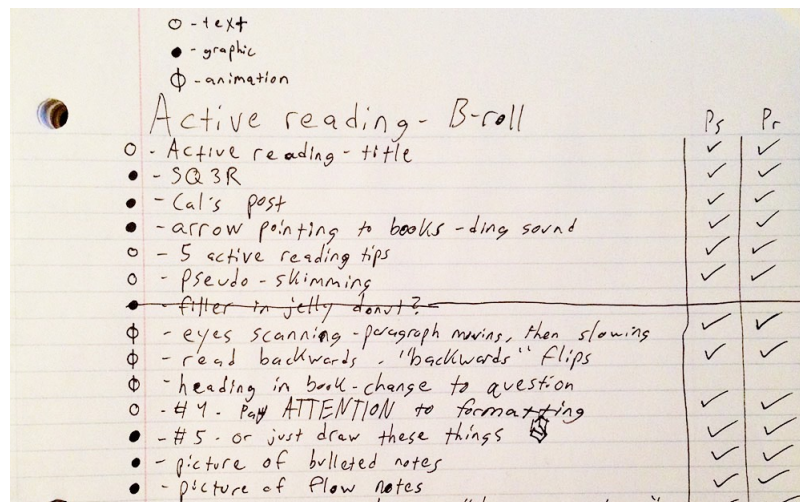 ○ - text
● - graphic
⌽ - animation
Active reading - B-roll Ps Pr
○ - Active reading - title ✓ ✓
● - SQ3R ✓ ✓
● - Cal's post ✓ ✓
● - arrow pointing to books - ding sound ✓ ✓
○ - 5 active reading tips ✓ ✓
○ - pseudo-skimming ✓ ✓
● - filler in jelly donut?
⌽ - eyes scanning - paragraph moving, then slowing ✓ ✓
⌽ - read backwards - "backwards" flips ✓ ✓
⌽ - heading in book - change to question
○ - #4 - Pay ATTENTION to formatting ✓ ✓
● - #5 - or just draw these things ✓ ✓
● - picture of bulleted notes ✓ ✓
● - picture of flow notes ✓ ✓